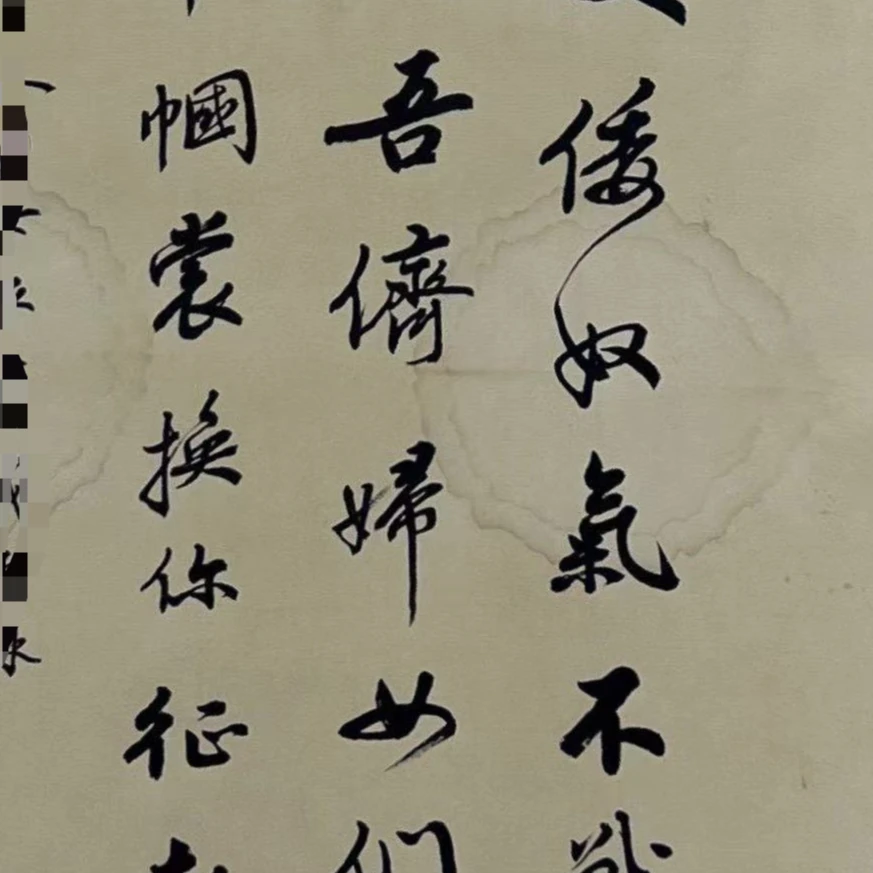 倭奴氣不戰
吾儕婦女們
幗裳換你征